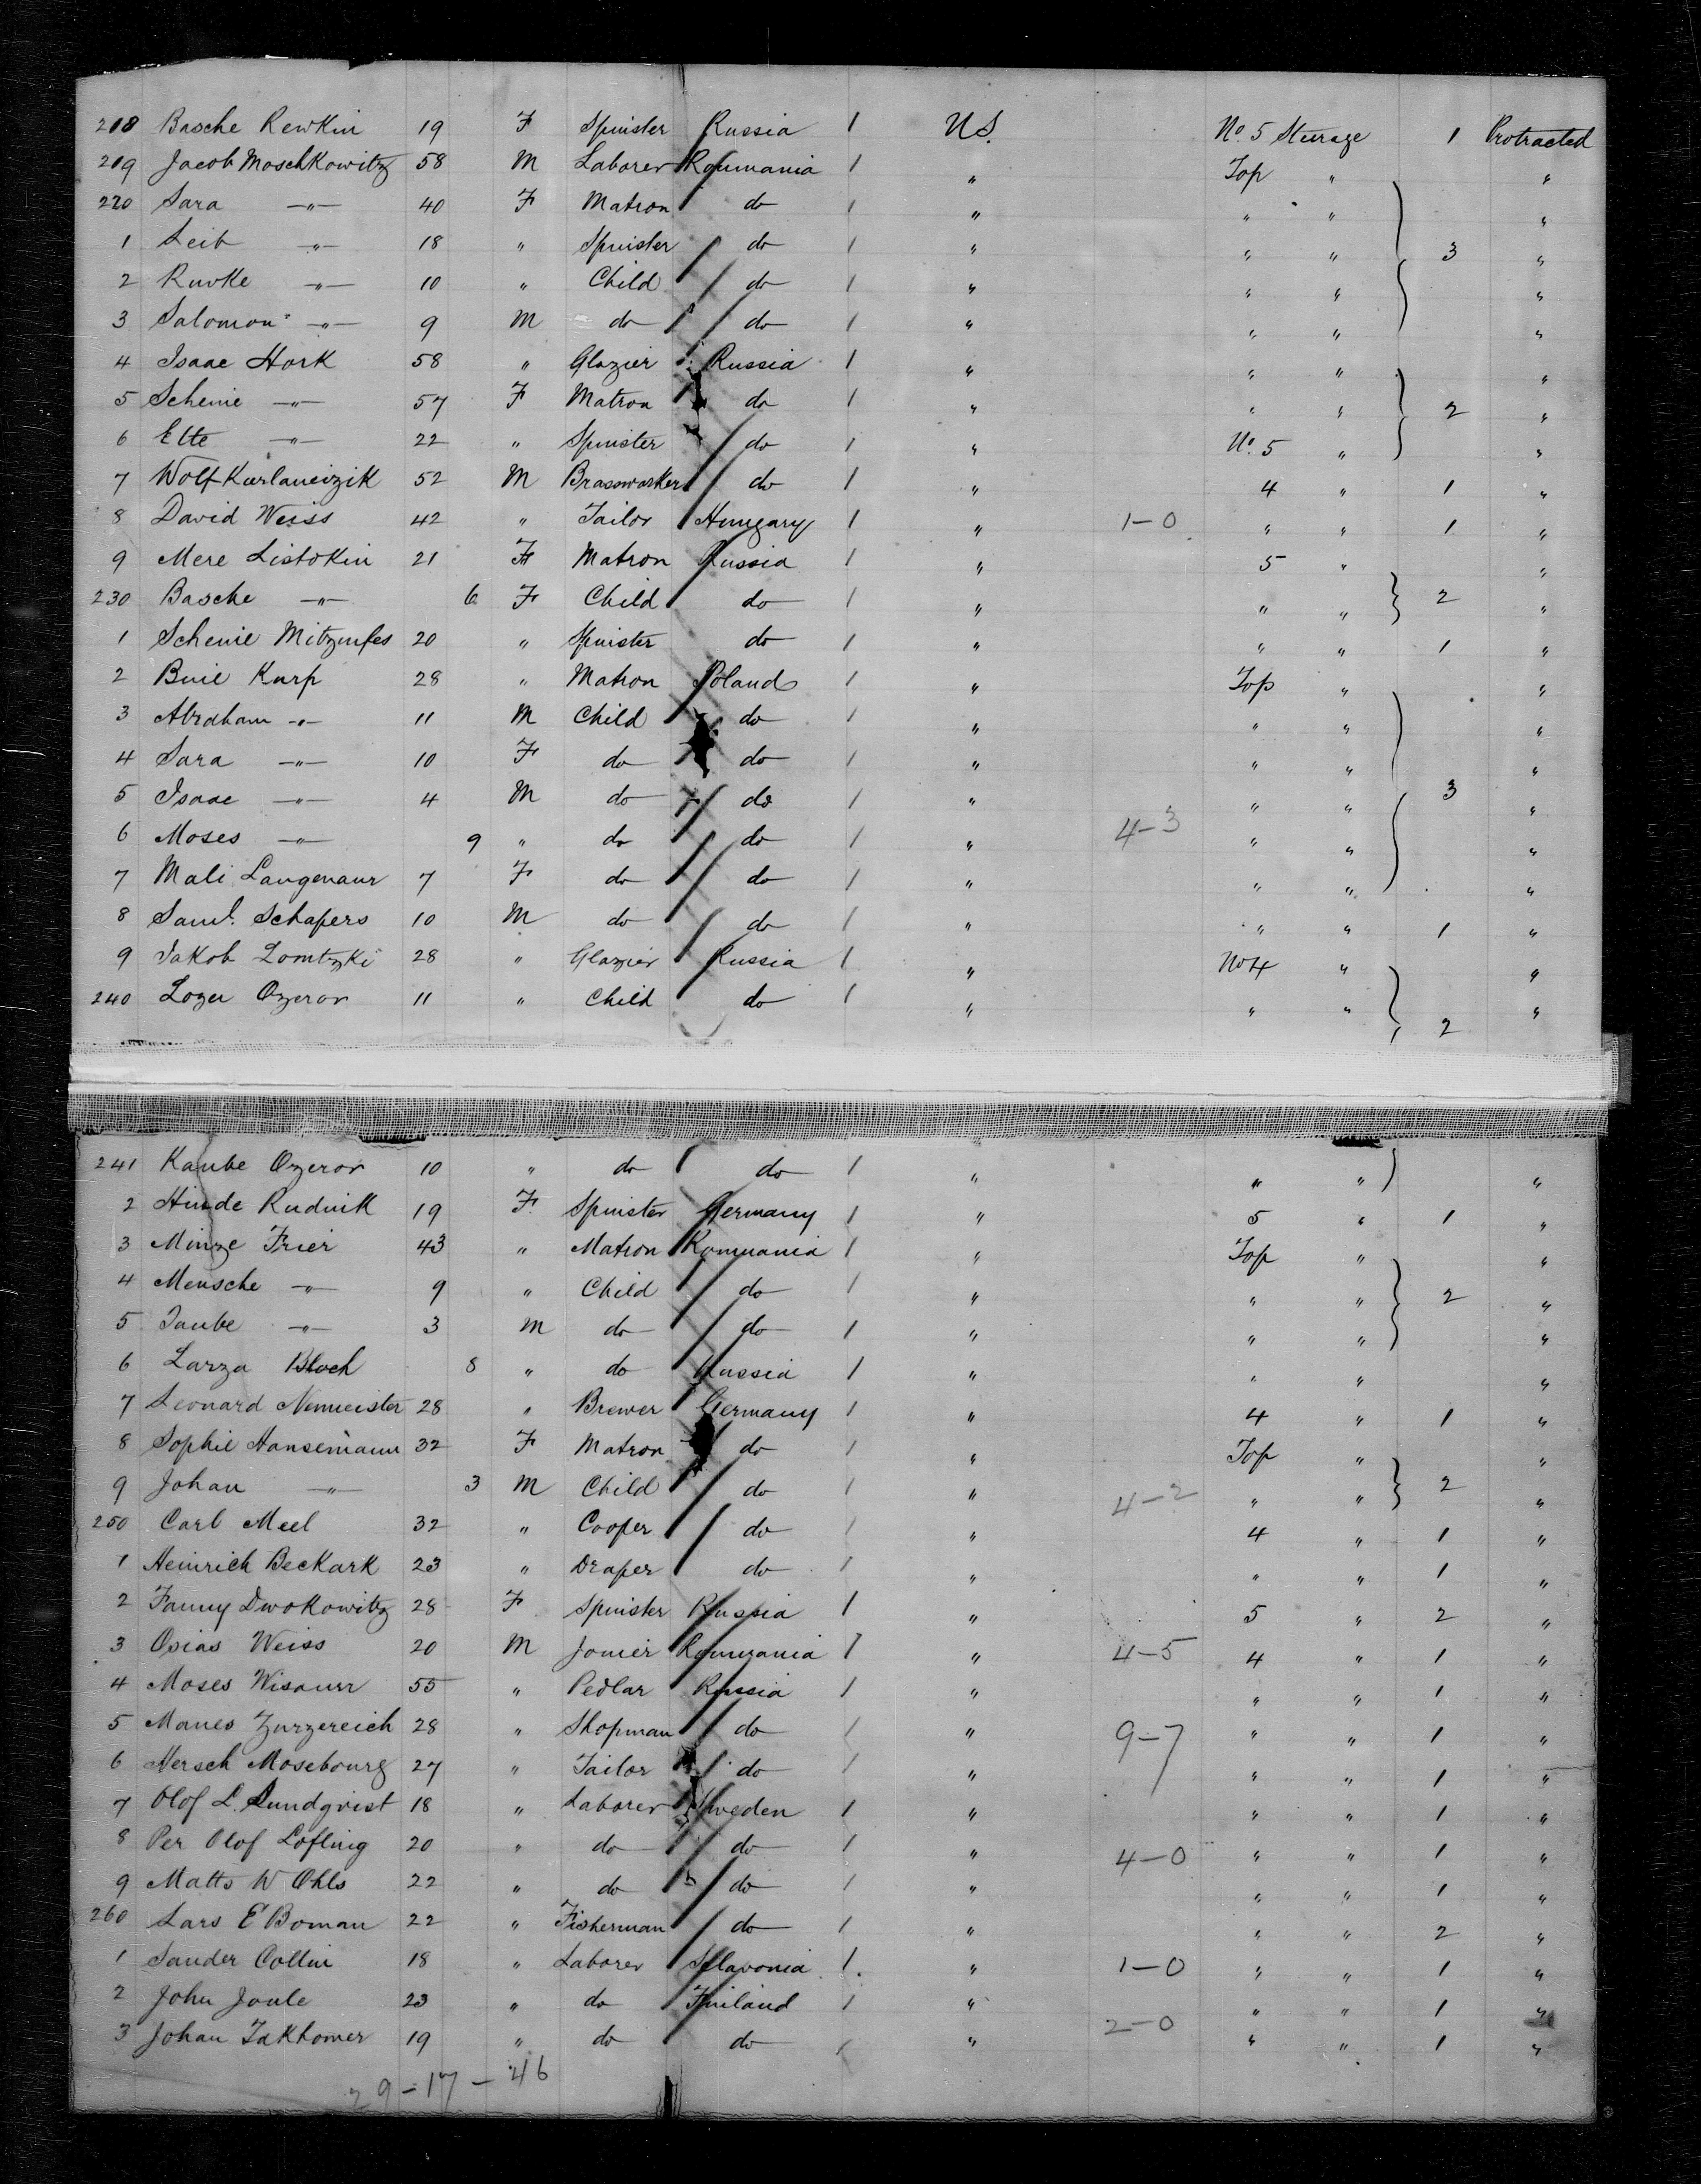 218 Basche Rewkin 19 F Spinster Russia 1 U.S. No. 5 Steerage 1 Protracted
219 Jacob Moschkowitz 58 M Laborer Roumania 1 " Top " "
220 Sara —"— 40 F Matron do 1 " " " "
1 Leib —"— 18 " Spinster do 1 " " " 3 "
2 Ruvke —"— 10 " Child do 1 " " " "
3 Salomon —"— 9 M do do 1 " " " "
4 Isaac Hork 58 " Glazier Russia 1 " " " "
5 Scheine —"— 57 F Matron do 1 " " " 2 "
6 Ette —"— 22 " Spinster do 1 " No. 5 " "
7 Wolf 52 M Brassworker do 1 " 4 " 1 "
8 David Weiss 42 " Tailor Hungary 1 " 1-0 " " 1 "
9 Mere Listokin 21 F Matron Russia 1 " 5 " "
230 Basche —"— 6 F Child do 1 " " " 2 "
1 Scheine 20 " Spinster do 1 " " " 1 "
2 Karp 28 " Matron Poland 1 " Top " "
3 Abraham —"— 11 M Child do 1 " " " "
4 Sara —"— 10 F do do 1 " " " "
5 Isaac —"— 4 M do do 1 " " " 3 "
6 Moses —"— 9 " do do 1 " 4-3 " " "
7 Mali Langenaur 7 F do do 1 " " " "
8 Saml. Schapers 10 M do do 1 " " " 1 "
9 Jakob Lomtzki 28 " Glazier Russia 1 " No 4 " "
240 Lozer Ozeror 11 " Child do 1 " " " 2 "
241 Kaube Ozeror 10 " do do 1 " " " "
2 Hinde Rudnik 19 F Spinster Germany 1 " 5 " 1 "
3 Minze Frier 43 " Matron Roumania 1 " Top " "
4 Mensche —"— 9 " Child do 1 " " " 2 "
5 Taube —"— 3 M do do 1 " " " "
6 Larza Bloch 8 " do Russia 1 " " " "
7 Leonard Nemeister 28 " Brewer Germany 1 " 4 " 1 "
8 Sophie Hansemann 32 F Matron do 1 " Top " "
9 Johan —"— 3 M Child do 1 " 4-2 " " 2 "
250 Carl Meel 32 " Cooper do 1 " 4 " 1 "
1 Heinrich Beckark 23 " Draper do 1 " " " 1 "
2 Fanny Dwokowitz 28 F Spinster Russia 1 " 5 " 2 "
3 Osias Weiss 20 M Joiner Roumania 1 " 4-5 4 " 1 "
4 Moses 55 " Pedlar Russia 1 " " " 1 "
5 Manes Zurzereich 28 " Shopman do 1 " 9-7 " " 1 "
6 Hersch Mosebourg 27 " Tailor do 1 " " " 1 "
7 Olof L. Lundqvist 18 " Laborer Sweden 1 " " " 1 "
8 Per Olof Lofling 20 " do do 1 " 4-0 " " 1 "
9 Matts W Ohls 22 " do do 1 " " " 1 "
260 Lars E Boman 22 " Fisherman do 1 " " " 2 "
1 Sander Collin 18 " Laborer Sllavonia 1 " 1-0 " " 1 "
2 John Joule 23 " do Finland 1 " " " 1 "
3 Johan Takhomer 19 " do do 1 " 2-0 " " 1 "
29-17-46